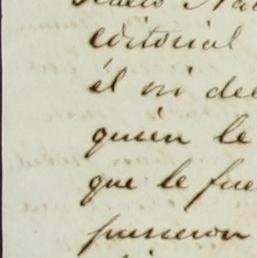 editorial
él ni de
quien le
que le fue
pusieron